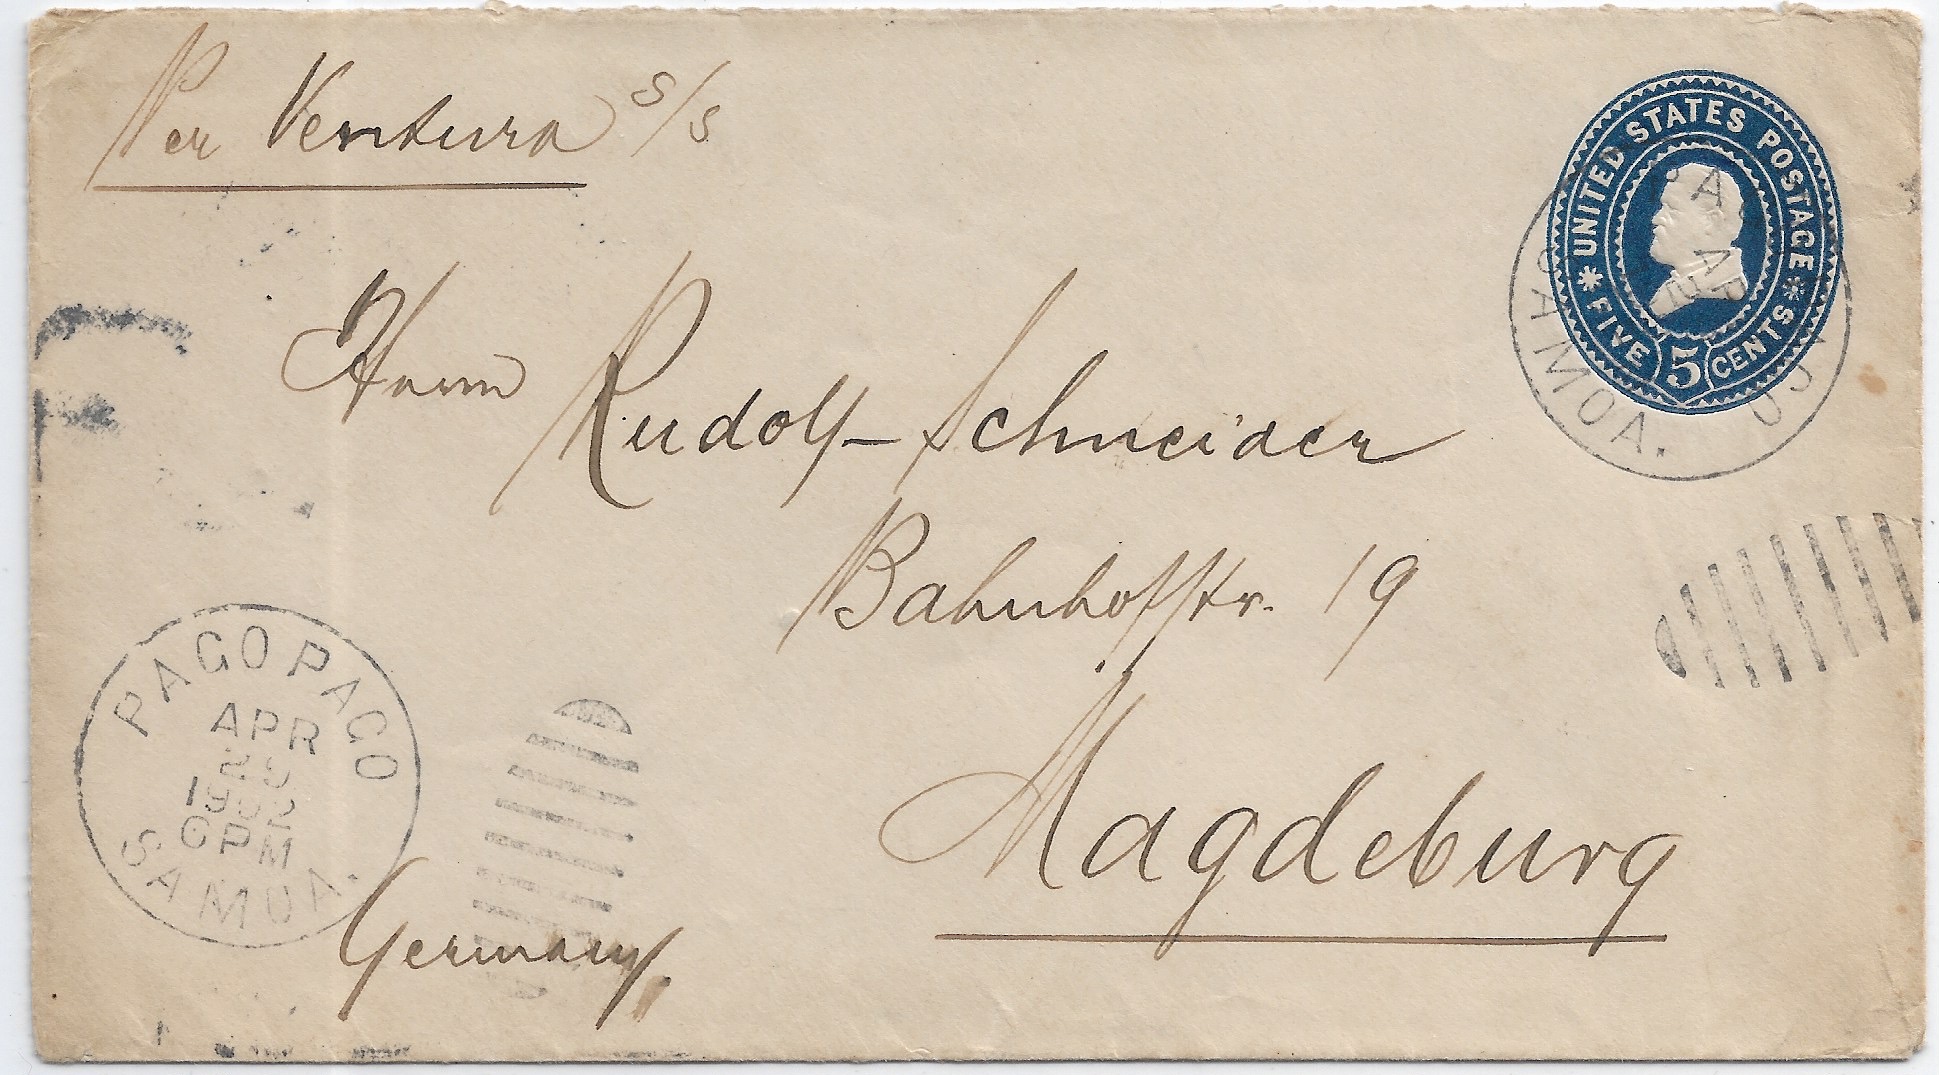 Per Ventura s/s
UNITED STATES POSTAGE
FIVE 5 CENTS
PAGO
SAMOA.
AP
Herrn
Rudolf Schneider
Bahnhofstr. 19
Magdeburg
Germany.
PAGO PAGO
APR
1902
6PM
SAMOA.